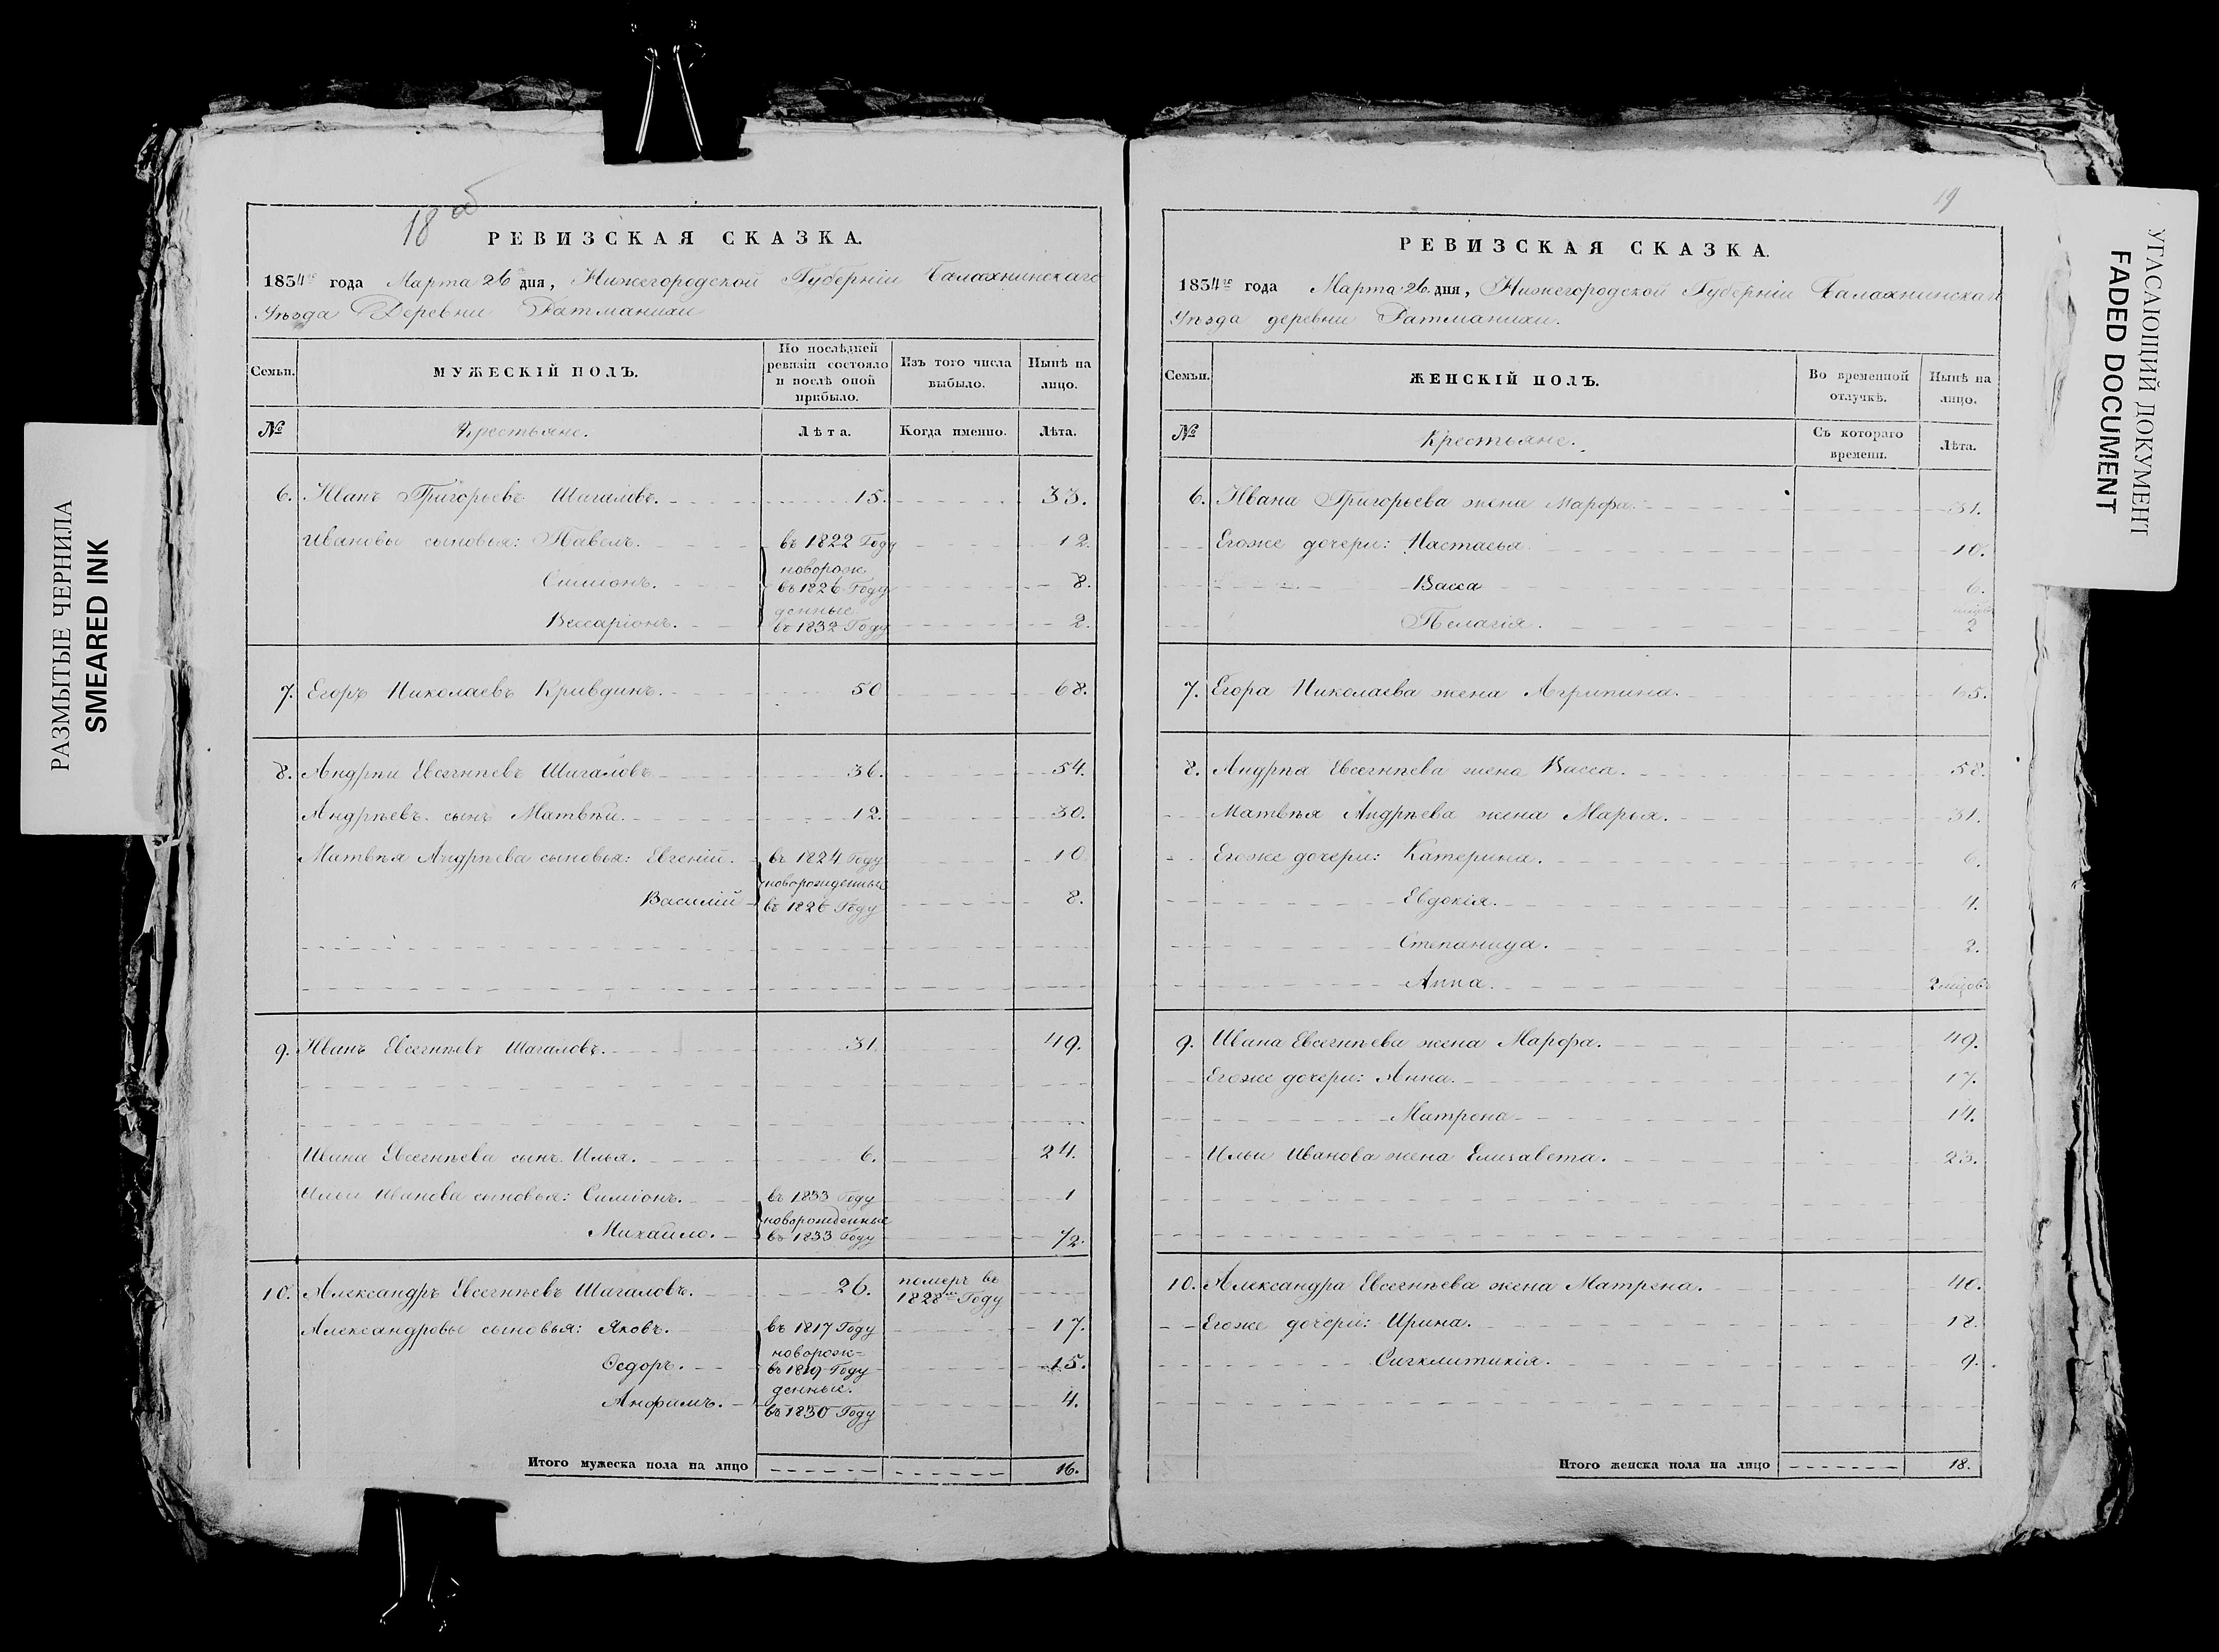 18 об
РЕВИЗСКАЯ СКАЗКА.
1834го года Марта 26 дня, Нижегородской Губерніи Балахнинскаго
Уѣзда Деревни Ратманихи
Семьи.
МУЖЕСКІЙ ПОЛЪ.
По послѣдней ревизіи состояло и послѣ оной прибыло.
Изъ того числа выбыло.
Нынѣ на лицо.
№ Крестьяне. Лѣта. Когда именно. Лѣта.
6. Иванъ Григорьевъ Шигаловъ. 15. 33.
Ивановы сыновья: Павелъ. въ 1822 Году 12.
новорож
Симіонъ. въ 1826 Году 8.
денные
Виссаріонъ. въ 1832 Году 2.
7. Егоръ Николаевъ Кривдинъ. 50 68.
8. Андрѣй Евсегнѣевъ Шигаловъ 36. 54.
Андрѣевъ сынъ Матвѣй. 12. 30.
Матвѣя Андрѣева сыновья: Евгеній. въ 1824 Году 10
новорожденные
Василій въ 1826 Году 8.
9. Иванъ Евсегнѣевъ Шагаловъ. 31. 49.
Ивана Евсегнѣева сынъ Илья. 6. 24.
Ильи Иванова сыновья: Симіонъ. въ 1833 Году 1
новорожденные
Михайло. въ 1833 Году 1/2.
10. Александръ Евсегнѣевъ Шигаловъ. 26. померъ въ
1828мъ Году
Александровы сыновья: Яковъ. въ 1817 Году 17.
новорож=
Ѳедоръ. въ 1819 Году 15.
денные.
Анфимъ. въ 1830 Году 4.
Итого мужеска пола на лицо 16.
19
РЕВИЗСКАЯ СКАЗКА.
1834го года Марта 26 дня, Нижегородской Губерніи Балахнинскаг
Уѣзда деревни Ратманихи.
Семьи.
ЖЕНСКІЙ ПОЛЪ.
Во временной отлучкѣ.
Нынѣ на лицо.
№ Крестьяне. Съ котораго времени. Лѣта.
6. Ивана Григорьева жена Марфа. 31.
Егоже дочери: Настасья 10.
Васса 6.
Пелагія. 2
7. Егора Николаева жена Агрипина. 65.
8. Андрѣя Евсегнѣева жена Васса. 58.
Матвѣя Андрѣева жена Марья. 31.
Егоже дочери: Катерина. 6.
Евдокія. 4.
Степанида. 2.
Анна. 2
9. Ивана Евсегнѣева жена Марфа. 49.
Егоже дочери: Анна. 17.
Матрена 14.
Ильи Иванова жена Елизавета. 23.
10. Александра Евсегнѣева жена Матрена. 40.
Егоже дочери: Ирина. 18.
Сигклитикія. 9.
Итого женска пола на лицо 18.
РАЗМЫТЫЕ ЧЕРНИЛА
SMEARED INK
УГАСАЮЩИЙ ДОКУМЕНТ
FADED DOCUMENT